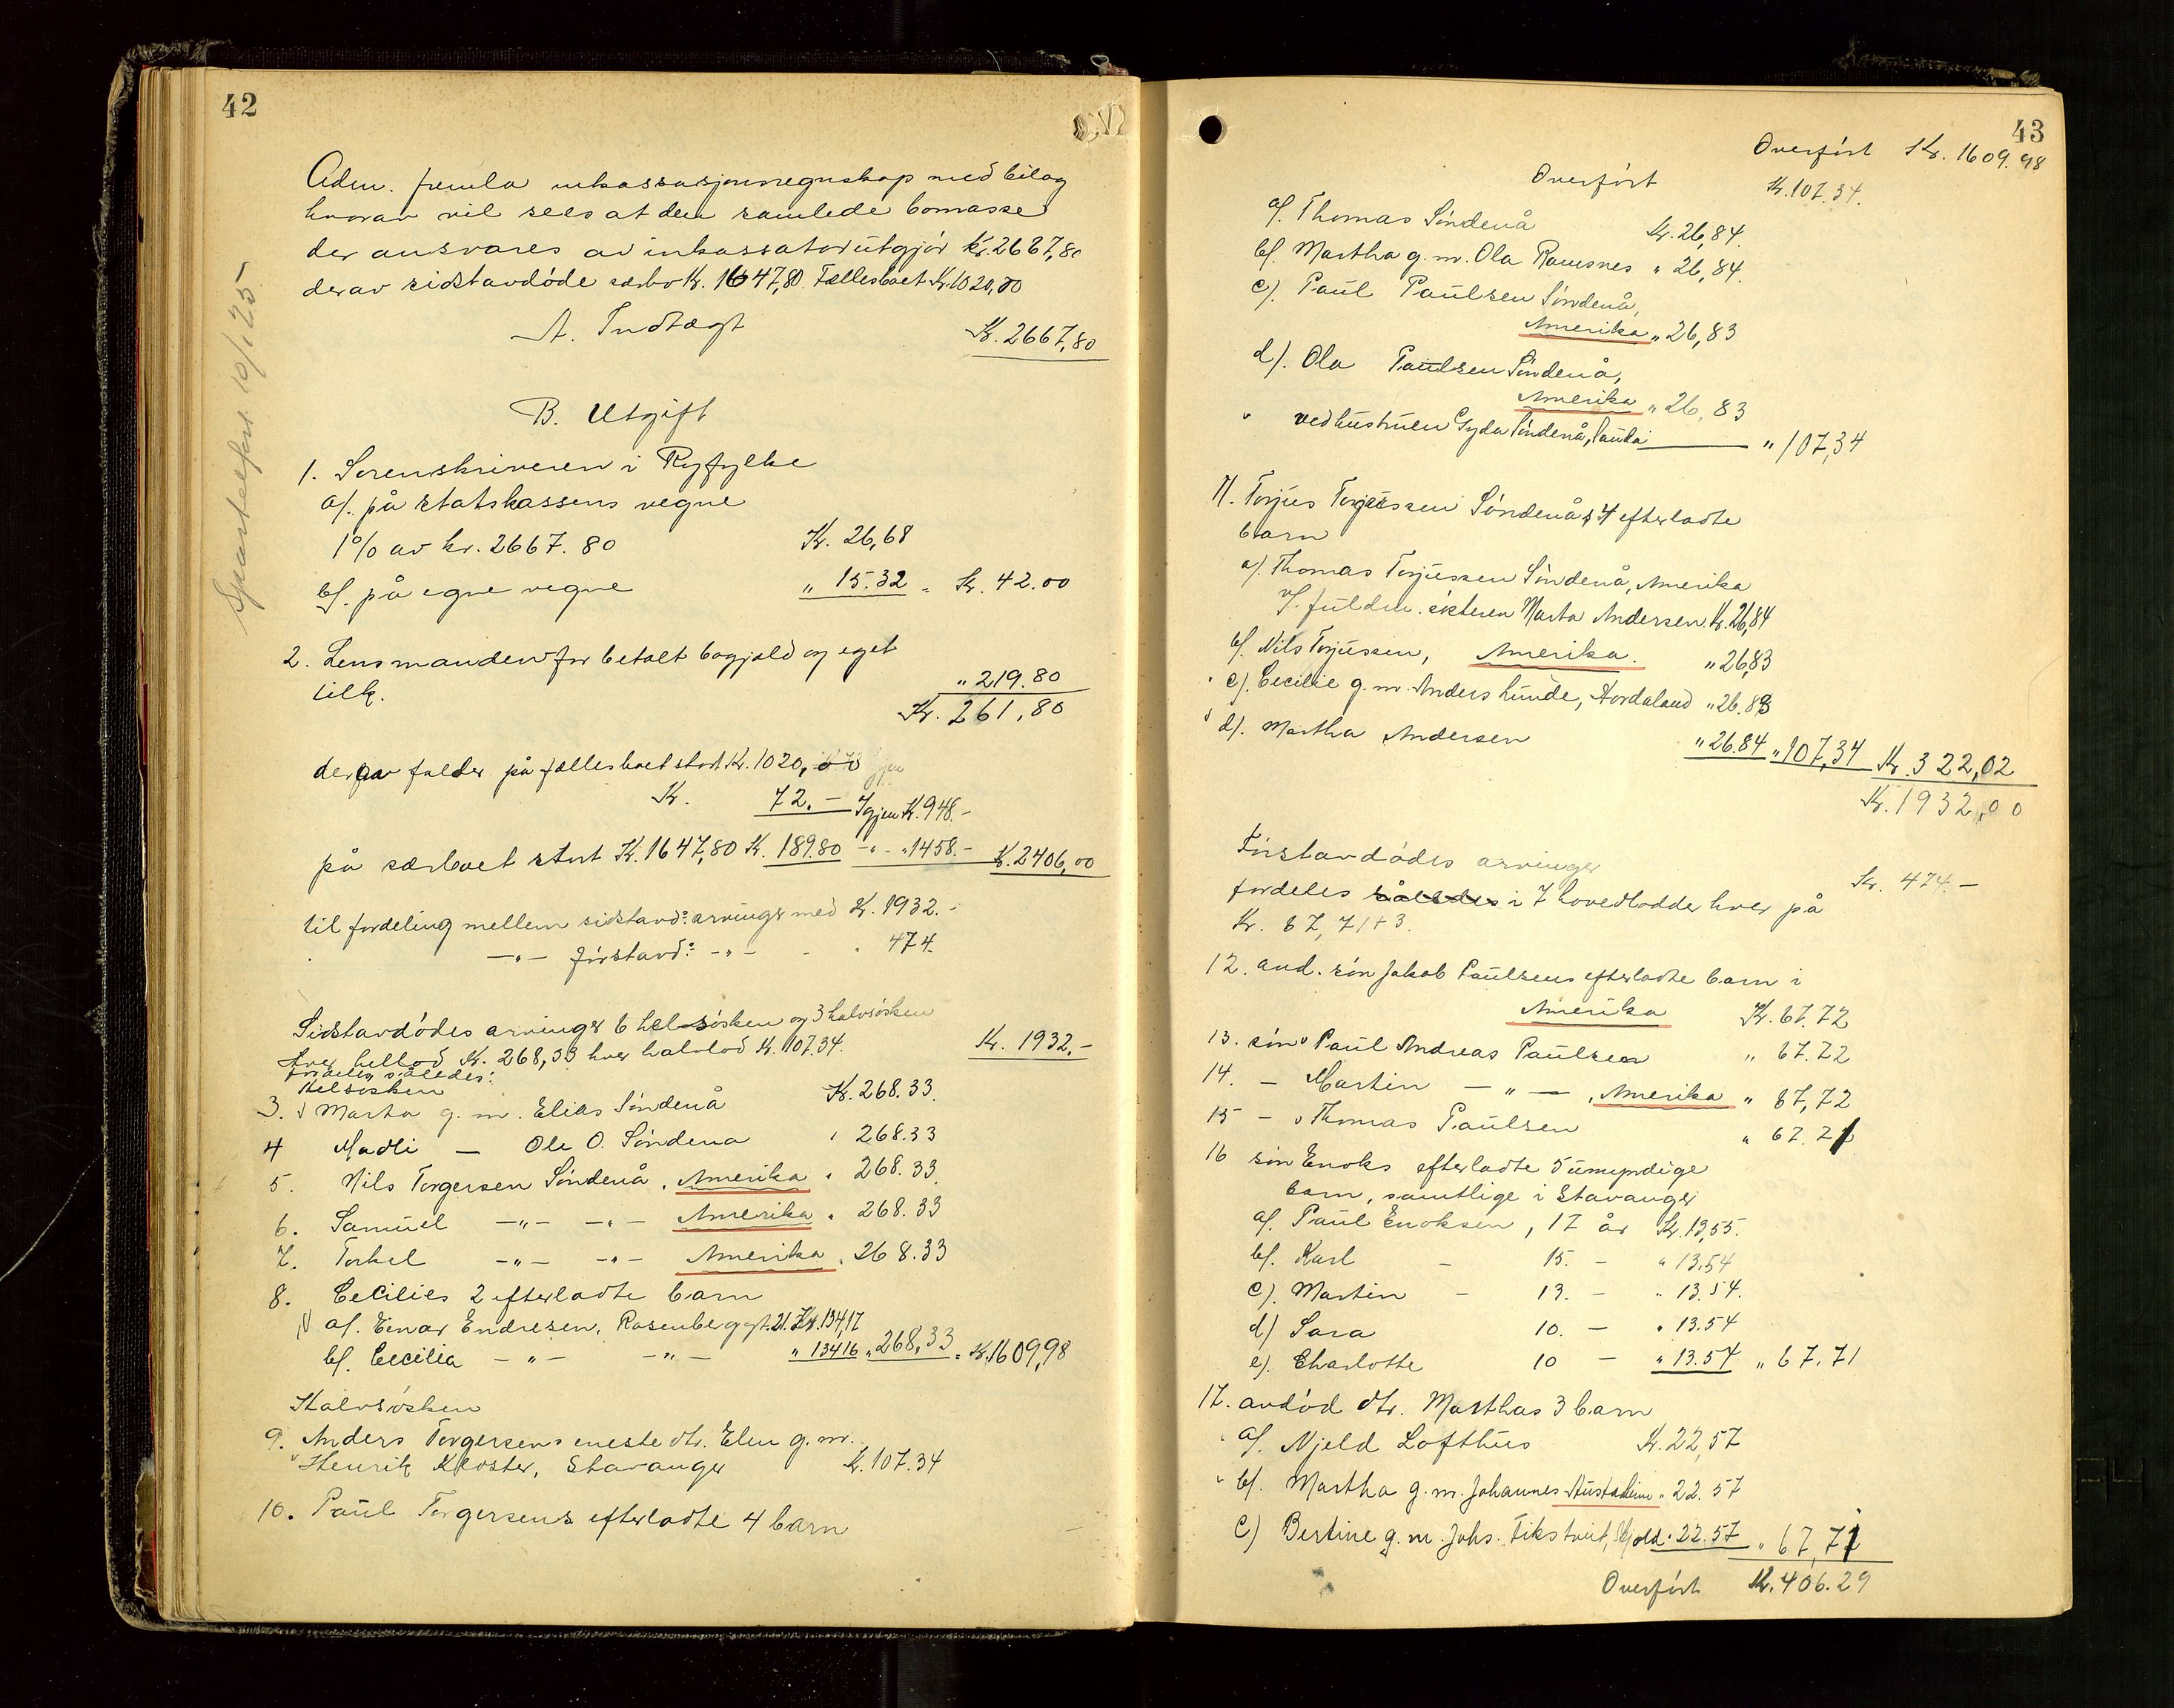 42
Adm. fremla inkassasjonsregnskap med bilag
hvorav vil sees at den samlede bomasse
der ansvares av inkassator utgjör Kr. 2667,80
derav sidstavdöde særbo Kr. 1647,80. Fællesboet Kr. 1020,00
A. Indtægt Kr. 2667,80
B. Utgift
1. Sorenskriveren i Ryfylke
a/. på statskassens vegne
1% av kr. 2667.80 Kr. 26,68
b/. på egne vegne " 15.32 = Kr. 42.00
2. Lensmanden for betalt bogjæld og eget
tilk. " 219.80
Kr. 261,80
derav falder på fællesboet stort Kr. 1020,00
Kr. 72.— Igjen Kr. 948.-
på særboet stort Kr. 1647,80 Kr. 189.80 -"- " 1458.- Kr. 2406,00
til fordeling mellem sidstavd: arvinger med Kr. 1932.-
—"— förstavd: -"- 474.
Sidstavdödes arvinger 6 helsösken og 3 halvsösken
Hver hellod Kr. 268,33 hver halvlod Kr. 107.34. Kr. 1932.-
fordeles således:
Helsösken
3. Marta g. m. Elias Söndenå Kr. 268.33.
4 Madli — Ole O. Söndena " 268.33
5. Nils Torgersen Söndenå, Amerika " 268.33.
6. Samuel -"- -"- Amerika " 268.33
7. Torkel -"- -"- Amerika " 268.33
8. Cecilies 2 efterladte barn
a/. Einar Endresen, Rosenberggt. 21. Kr. 134,17
b/. Cecilia -"- -"- " 134 16 " 268,33 = Kr. 1609,98
Halvsösken
9. Anders Torgersens eneste dtr. Elen g. m.
Henrik Kloster, Stavanger Kr. 107.34
10. Paul Torgersens efterladte 4 barn
43
Overfört Kr. 1609.98
Overfört Kr. 107.34.
a/. Thomas Söndenå Kr. 26,84.
b/. Martha g. m. Ola Ramsnes " 26,84.
c/. Paul Paulsen Söndenå,
Amerika " 26,83
d/. Ola Paulsen Söndenå,
Amerika " 26,83
ved hustruen Gyda Söndenå, Sauda " 107,34
11. Torjus Torjussen Söndenås 4 efterladte
barn
a/. Thomas Torjussen Söndenå, Amerika
v/. fuldm. sösteren Marta Andersen. Kr. 26,84
b/. Nils Torjussen, Amerika. " 26,83
c/. Cecilie g. m. Anders Lunde, Hordaland " 26.83
d/. Martha Andersen " 26.84 " 107,34 Kr. 322,02
Kr. 1932,00
Förstavdödes arvinger Kr. 474.—
fordeles således i 7 hovedlodder hver på
Kr. 67,71+3.
12. avd. sön Jakob Paulsens efterladte barn i
Amerika Kr. 67.72
13. sön Paul Andreas Paulsen " 67.72
14. — Martin —"—, Amerika " 67,72
15 — Thomas Paulsen " 67.71
16 sön Enoks efterladte 5 umyndige
barn, samtlige i Stavanger
a/. Paul Enoksen, 17 år Kr. 13,55.
b/. Karl - 15. — " 13.54
c/. Martin - 13. — " 13.54.
d/ Sara 10. — " 13.54
e/. Charlotte 10 — " 13.54 " 67.71
17. avdöd dtr. Marthas 3 barn
a/. Njeld Lofthus Kr. 22,57
b/. Martha g. m. Johannes Austarheim " 22.57
c/ Bertine g. m. Johs. Fikstveit, Skjold " 22.57 " 67,71
Overfört Kr. 406.29